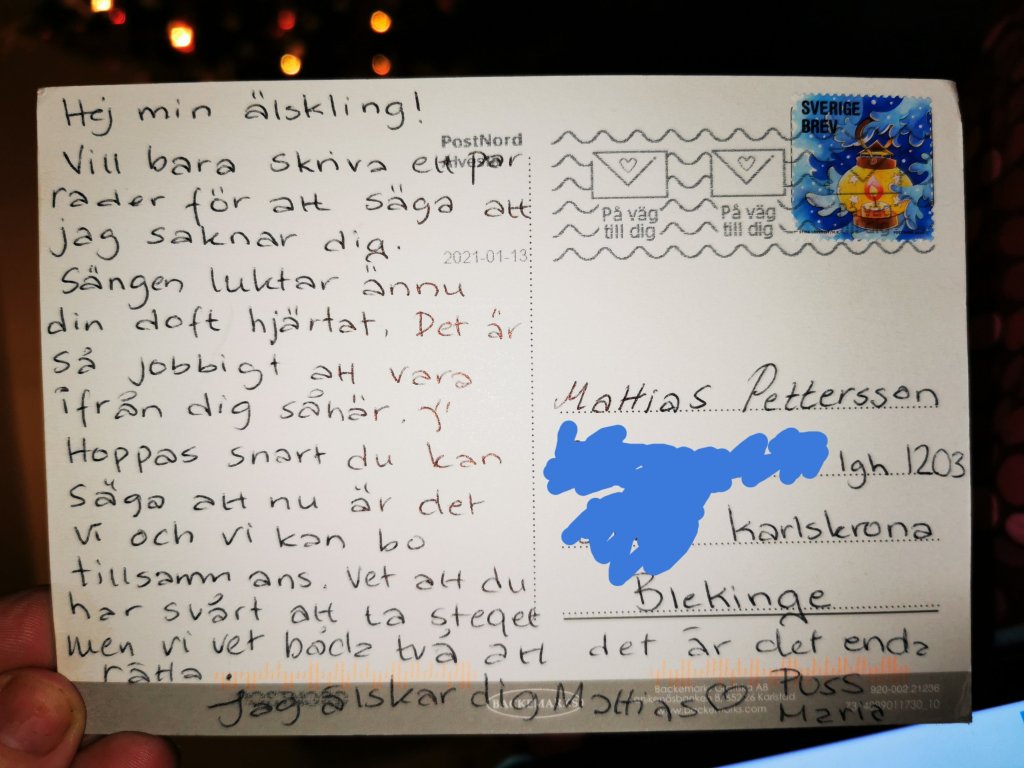 Hej min älskling!
Vill bara skriva ett par
rader för att säga att
jag saknar dig.
Sängen luktar ännu
din doft hjärtat. Det är
så jobbigt att vara
ifrån dig såhär.
Hoppas snart du kan
säga att nu är det
vi och vi kan bo
tillsammans. Vet att du
har svårt att ta steget
men vi vet båda två att det är det enda
rätta.
Jag älskar dig Mattias
Puss
Maria
PostNord
2021-01-13
På väg
till dig
På väg
till dig
SVERIGE
BREV
Mattias Pettersson
lgh 1203
Karlskrona
Blekinge
BACKEMARKS
Backemarks Grafiska AB
55226 Karlstad
www.backemarks.com
920-002 21236